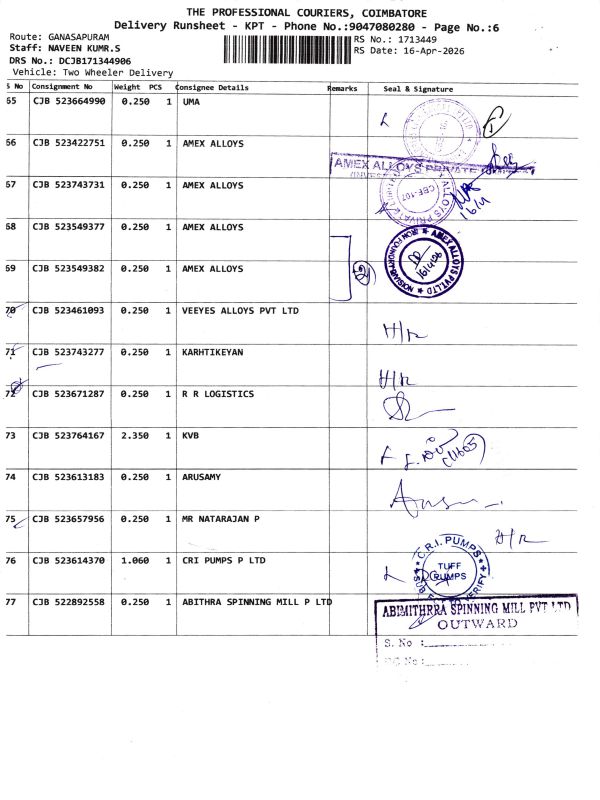 THE PROFESSIONAL COURIERS, COIMBATORE
Delivery Runsheet - KPT - Phone No.:9047080280 - Page No.:6
Route: GANASAPURAM
RS No.: 1713449
Staff: NAVEEN KUMR.S
RS Date: 16-Apr-2026
DRS No.: DCJB171344906
Vehicle: Two Wheeler Delivery
S No Consignment No Weight PCS Consignee Details Remarks Seal & Signature
65 CJB 523664990 0.250 1 UMA
66 CJB 523422751 0.250 1 AMEX ALLOYS
AMEX ALLOYS PRIVATE
67 CJB 523743731 0.250 1 AMEX ALLOYS
CBE-107
16/4
68 CJB 523549377 0.250 1 AMEX ALLOYS
AMEX ALLOYS PVT LTD
16/4/26
69 CJB 523549382 0.250 1 AMEX ALLOYS
70 CJB 523461093 0.250 1 VEEYES ALLOYS PVT LTD
H/R
71 CJB 523743277 0.250 1 KARHTIKEYAN
H/R
72 CJB 523671287 0.250 1 R R LOGISTICS
73 CJB 523764167 2.350 1 KVB
(11605)
74 CJB 523613183 0.250 1 ARUSAMY
75 CJB 523657956 0.250 1 MR NATARAJAN P
H/R
76 CJB 523614370 1.060 1 CRI PUMPS P LTD
C.R.I. PUMPS
TUFF
PUMPS
77 CJB 522892558 0.250 1 ABITHRA SPINNING MILL P LTD
ABIMITHRRA SPINNING MILL PVT LTD
OUTWARD
S. No :